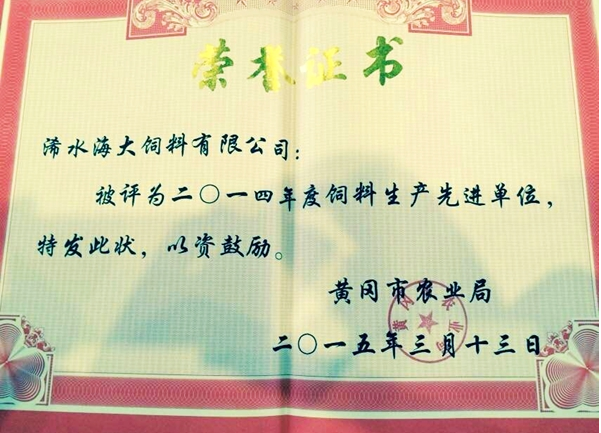 荣誉证书
浠水海大饲料有限公司：
被评为二〇一四年度饲料生产先进单位，
特发此状，以资鼓励。
黄冈市农业局
二〇一五年三月十三日